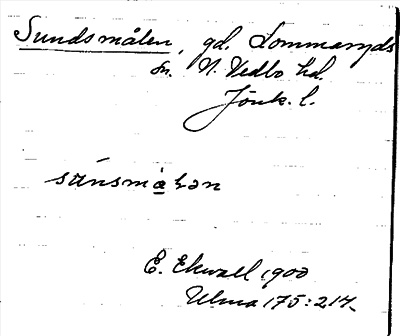 Sundsmålen, gd. Lommaryds
sn. N. Vedbo hd.
Jönk. l.
E. Ekwall 1900
Ulma 175:217